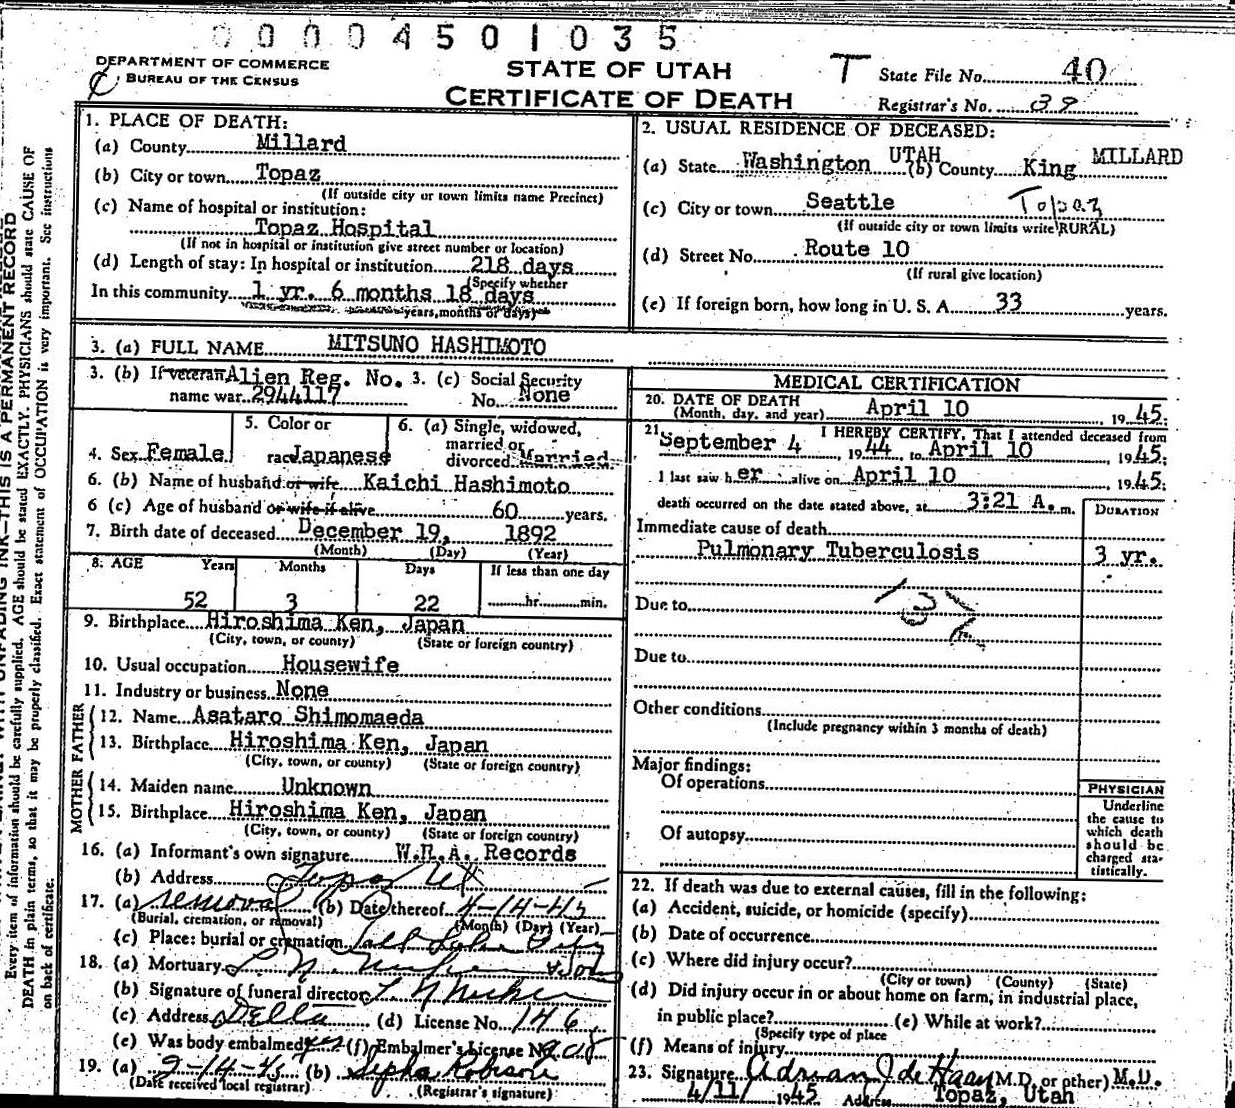 0 0 0 0 4 5 0 1 0 3 5
DEPARTMENT OF COMMERCE
BUREAU OF THE CENSUS
STATE OF UTAH
CERTIFICATE OF DEATH
T State File No. 40
Registrar's No. 39
Every item of information should be carefully supplied. AGE should be stated EXACTLY. PHYSICIANS should state CAUSE OF
DEATH in plain terms, so that it may be properly classified. Exact statement of OCCUPATION is very important. See instructions
on back of certificate.
UNFADING INK—THIS IS A PERMANENT RECORD
1. PLACE OF DEATH:
(a) County Millard
(b) City or town Topaz
(If outside city or town limits name Precinct)
(c) Name of hospital or institution:
Topaz Hospital
(If not in hospital or institution give street number or location)
(d) Length of stay: In hospital or institution 218 days
(Specify whether
In this community 1 yr. 6 months 18 days
years, months or days)
2. USUAL RESIDENCE OF DECEASED:
UTAH MILLARD
(a) State Washington (b) County King
(c) City or town Seattle Topaz
(If outside city or town limits write RURAL)
(d) Street No. Route 10
(If rural give location)
(e) If foreign born, how long in U. S. A. 33 years.
3. (a) FULL NAME MITSUNO HASHIMOTO
3. (b) If veteran Alien Reg. No. 3. (c) Social Security
name war 2944117 No. None
4. Sex Female
5. Color or
race Japanese
6. (a) Single, widowed,
married or
divorced Married
6. (b) Name of husband or wife Kaichi Hashimoto
6 (c) Age of husband or wife if alive 60 years.
7. Birth date of deceased December 19, 1892
(Month) (Day) (Year)
8. AGE Years Months Days If less than one day
52 3 22 hr. min.
9. Birthplace Hiroshima Ken, Japan
(City, town, or county) (State or foreign country)
10. Usual occupation Housewife
11. Industry or business None
FATHER
12. Name Asataro Shimomaeda
13. Birthplace Hiroshima Ken, Japan
(City, town, or county) (State or foreign country)
MOTHER
14. Maiden name Unknown
15. Birthplace Hiroshima Ken, Japan
(City, town, or county) (State or foreign country)
16. (a) Informant's own signature W.R.A. Records
(b) Address Topaz Ut
17. (a) removal (b) Date thereof 4-14-45
(Burial, cremation, or removal) (Month) (Day) (Year)
(c) Place: burial or cremation Salt Lake City
18. (a) Mortuary
(b) Signature of funeral director
(c) Address Delta (d) License No. 146
(e) Was body embalmed yes (f) Embalmer's License No.
19. (a) (b)
(Date received local registrar) (Registrar's signature)
MEDICAL CERTIFICATION
20. DATE OF DEATH
(Month, day, and year) April 10, 1945;
21. I HEREBY CERTIFY, That I attended deceased from
September 4, 1944 to April 10, 1945;
I last saw her alive on April 10 1945;
death occurred on the date stated above, at 3:21 A.m.
DURATION
Immediate cause of death
Pulmonary Tuberculosis 3 yr.
Due to
Due to
Other conditions
(Include pregnancy within 3 months of death)
Major findings:
Of operations
Of autopsy
PHYSICIAN
Underline
the cause to
which death
should be
charged sta-
tistically.
22. If death was due to external causes, fill in the following:
(a) Accident, suicide, or homicide (specify)
(b) Date of occurrence
(c) Where did injury occur?
(City or town) (County) (State)
(d) Did injury occur in or about home on farm, in industrial place,
in public place? (e) While at work?
(Specify type of place
(f) Means of injury
23. Signature Adrian J. de Haay (M.D. or other) M.D.
4/11/ 1945 Address Topaz, Utah